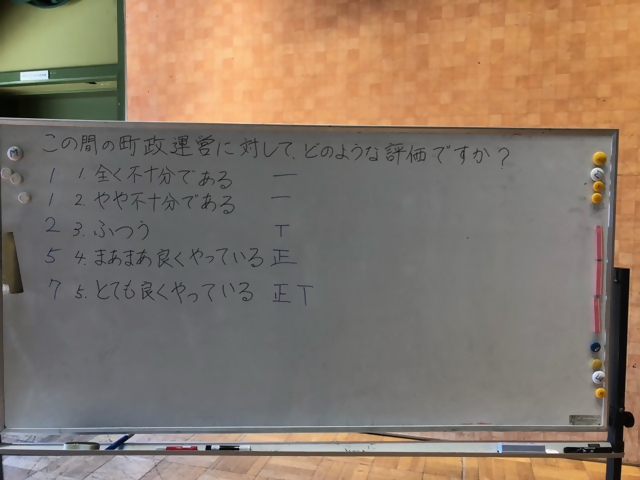 この間の町政運営に対して、どのような評価ですか?
1 1.全く不十分である 一
1 2.やや不十分である 一
2 3.ふつう T
5 4.まあまあ良くやっている 正
7 5.とても良くやっている 正T